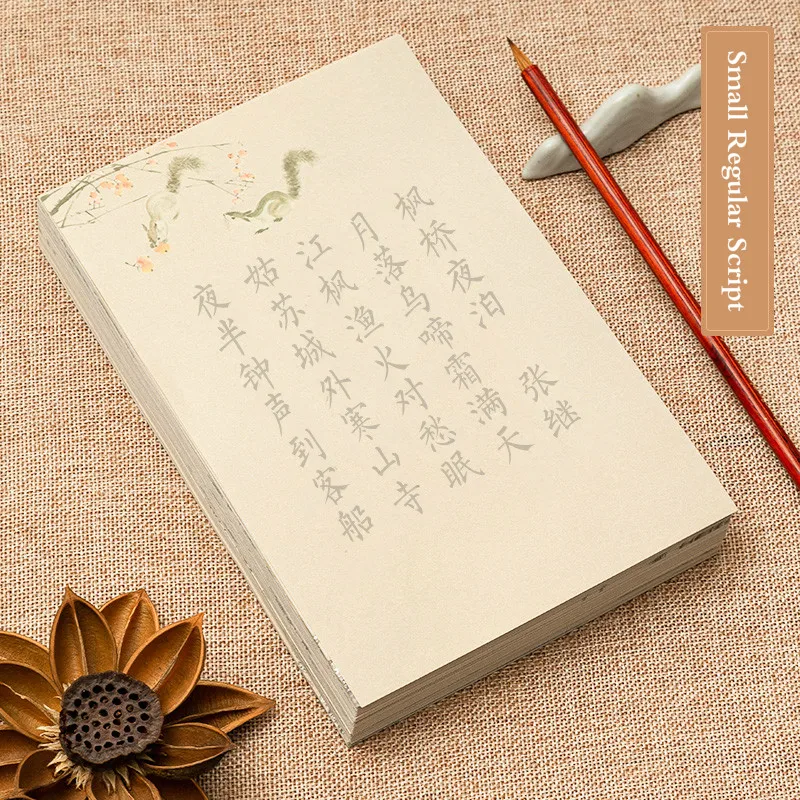 枫桥夜泊 张继
月落乌啼霜满天
江枫渔火对愁眠
姑苏城外寒山寺
夜半钟声到客船
Small Regular Script